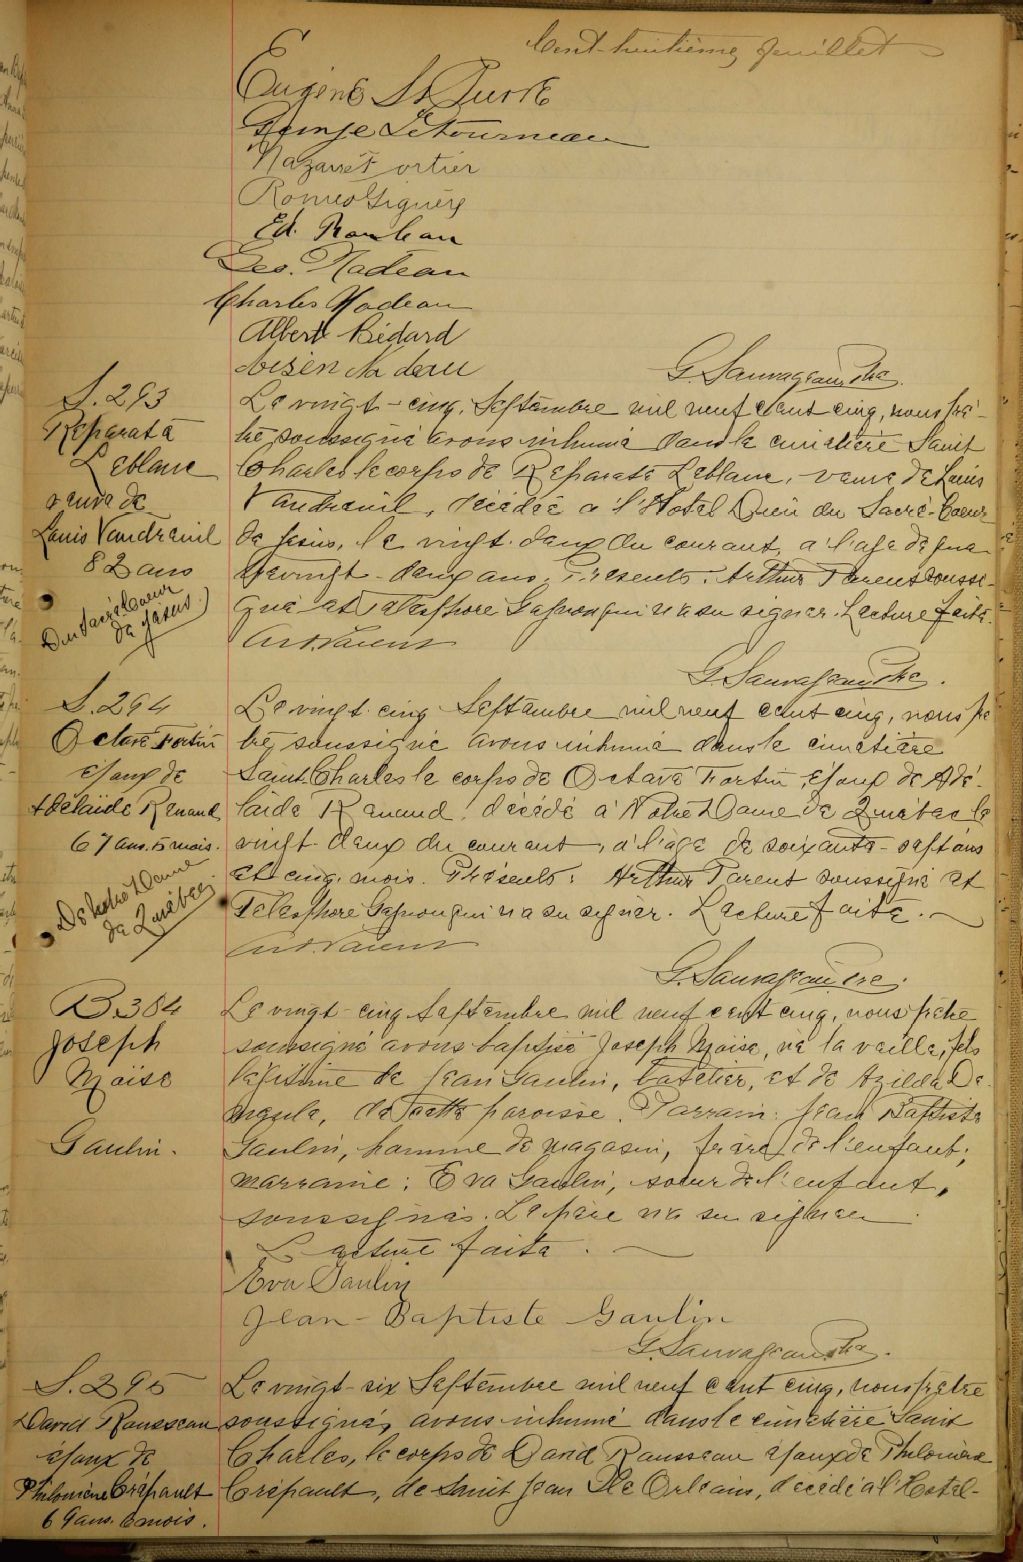 Cent-huitième, feuillet
Eugène St Pierre
George Letourneau
Nazaire Fortier
Romeo Giguère
Ed. Rouleau
Geo. Nadeau
Charles Nadeau
Albert Bédard
Nadeau
G. Sauvageau Ptre.
S. 293
Réparate
Leblanc
veuve de
Louis Vaudreuil
82 ans
Du Sacré-Coeur
de Jésus.)
Le vingt-cinq, Septembre mil neuf cent cinq, nous prê-
tre soussigné avons inhumé dans le cimetière Saint
Charles le corps de Réparate Leblanc, veuve de Louis
Vaudreuil, décédée à l'Hotel Dieu du Sacré-Coeur
de Jésus, le vingt-deux du courant, a l'age de qua-
trevingt-deux ans. Présents: Arthur Parent sousse-
gné et Telesphore Gagnon qui n'a su signer. Lecture faite.
Art. Parent
G. Sauvageau Ptre.
S. 294
Octave Fortin
époux de
Adélaïde Renaud
67 ans. 5 mois.
De Notre Dame
de Québec
Le vingt-cinq Septembre mil neuf cent cinq, nous prê
tre soussigné avons inhumé dans le cimetière
Saint-Charles le corps de Octave Fortin, époux de Adé-
laïde Renaud, décédé à Notre Dame de Québec le
vingt-deux du courant, a l'âge de soixante-sept ans
et cinq mois. Présents: Arthur Parent soussigné et
Telesphore Gagnon qui n'a su signer. Lecture faite.
Art. Parent
G. Sauvageau Ptre.
B. 384
Joseph
Moïse
Gaulin.
Le vingt-cinq Septembre mil neuf cent cinq, nous prêtre
soussigné avons baptisé Joseph Moïse, né la veille, fils
légitime de Jean Gaulin, batelier, et de Azilda De-
de cette paroisse. Parrain: Jean Baptiste
Gaulin, homme de magasin, frère de l'enfant;
marraine: Eva Gaulin, soeur de l'enfant,
soussignés. Le père n'a su signer.
Lecture faite.
Eva Gaulin
Jean-Baptiste Gaulin
G. Sauvageau Ptre.
S. 295
David Rousseau
époux de
Philomène Crépault
69 ans. 6 mois.
Le vingt-six Septembre mil neuf cent cinq, nous prêtre
soussigné, avons inhumé dans le cimetière Saint
Charles, le corps de David Rousseau époux de Philomène
Crépault, de Saint Jean Ile Orléans, décédé à l'Hotel-